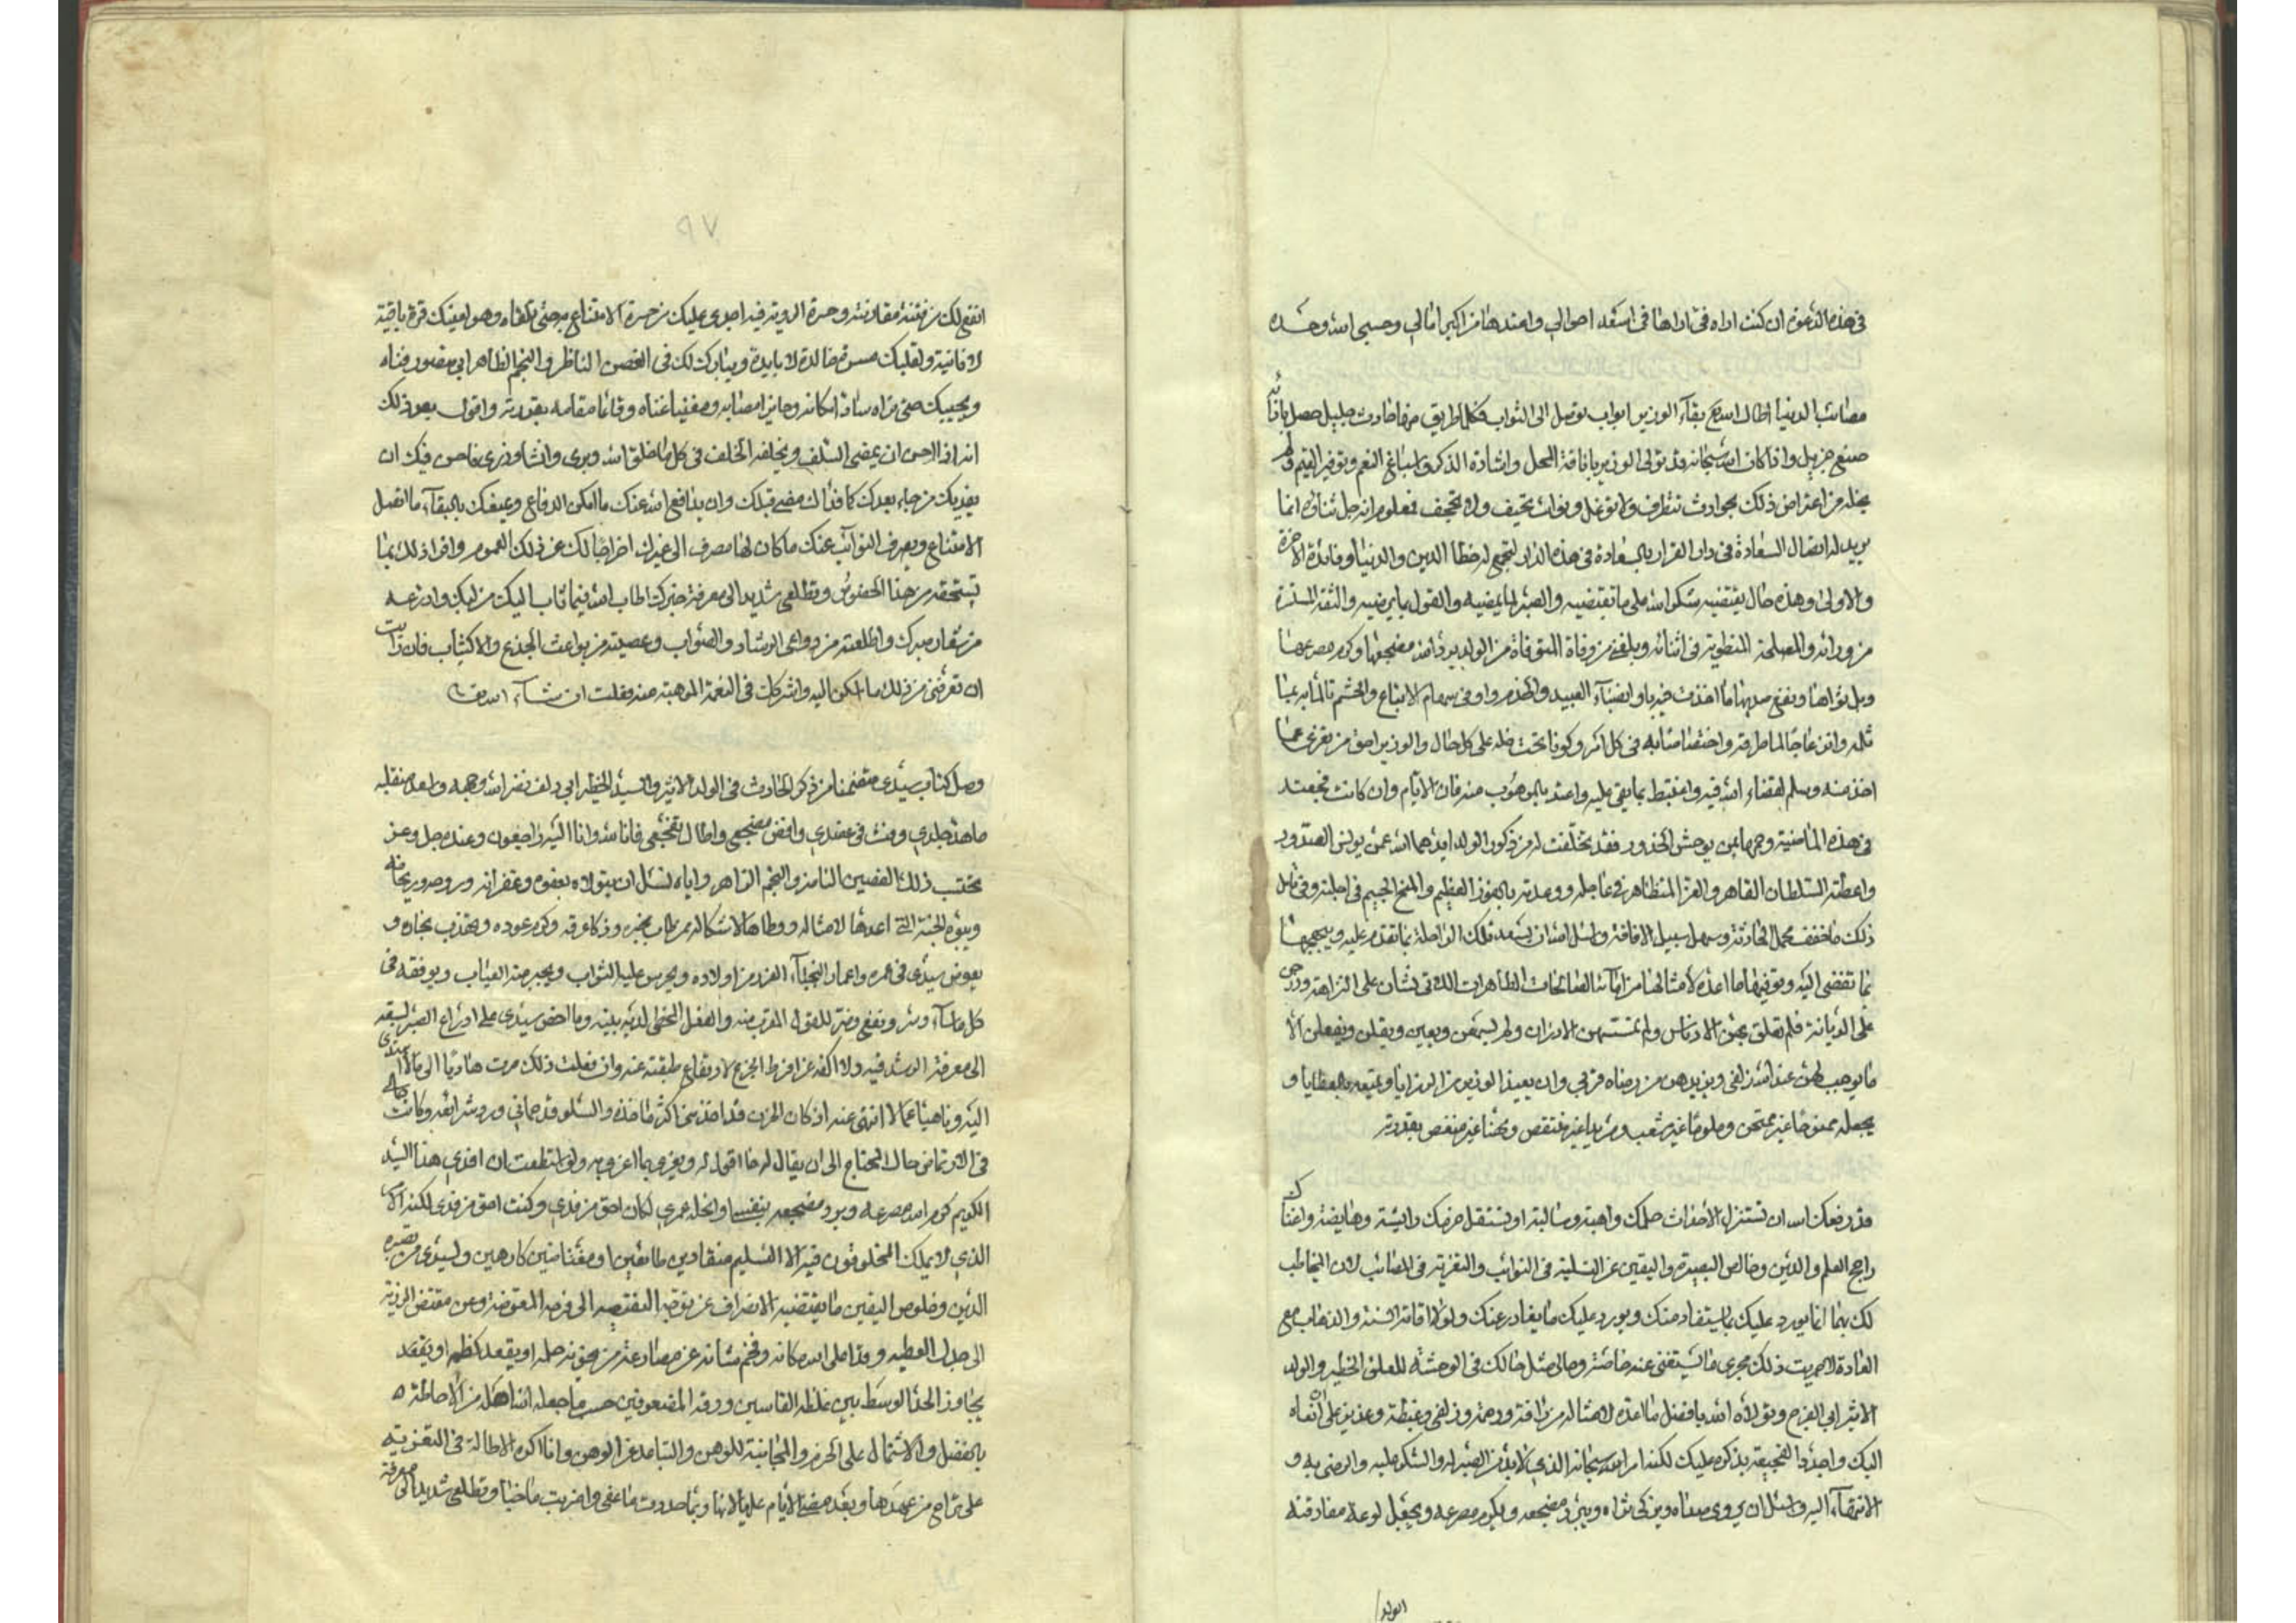 في هذه الدعوة ان كنت اراه في اداها في اسعد احوالي وامتدها من اكبر امالي وحسبي الله وحده
مصائب الدنيا اطال الله بقآء الوزير ابواب توصل الى الثواب فكلما طريق منها حادث جليل حصل بازآئه
صنع جزيل واذا كان الله سبحانه قد تولى الوزير بانافة المحل واشادة الذكر واسباغ النعم وتوفير القيم ولم
يخله من اعتراض ذلك بحوادث تتطرف ولا توغل ونوائب تحيف ولا تجحف فمعلوم انه جل ثناؤه انما
يريد له اتصال السعادة في دار القرار بالسعادة في هذه الدار ليجمع له حظا الدين والدنيا وفائدة الآخرة
والاولى وهذه حال يقتضيه شكر الله على ما تقتضيه والصبر لما يمضيه والقول بما يرضيه والثقة بالمسرة
من ورائه والمصلحة المنطوية في اثنائه وبلغني من وفاة المتوفاة من الولد برد الله مضجعها وكرم مصرعها
وبل ثراها ونفع صديها ما اخذت فيه باوفى انصبآء العبيد والخدم واوفى سهام الاتباع والحشم تالما به بما
ثلمه وانزعاجا لما طرقه واختصاصا به في كل امر وكونا تحت ظله على كل حال والوزير احق من تعزى عما
اخذ منه وسلم لقضاء الله فيه واغتبط بما بقي عليه واعتد بالموهوب منه فان الايام وان كانت فجعته
في هذه الماضية وجرها بمن يوحش الخدور فقد تخلفت له من ذكور الولد ايدهما الله عمن يونس الصدور
واعطته السلطان القاهر والعز المتظاهر في عاجله ووعدته بالفوز العظيم والمنح الجسيم في اجله وفي تامل
ذلك ما خفف محمل الحادثة وسهل سبيل الافاقة واسئل الله ان يسعد تلك الراحلة بما تقدم عليه ويبهجها
بما تفضي اليه ويوفيها ما اعده لامثالها من امائه الصالحات الطاهرات اللاتي نشان على النزاهة ودرجن
على الديانة فلم تعلق بهن الادناس ولم تمسسهن الادران ولم يسمعن ويعين ويقلن ويفعلن الا
ما يوجب لهن عند الله زلفى ويزيدهن من رضاه قربى وان يعيذ الوزير من الرزايا ويمتعه بالعطايا و
يجعله ممنوحا غير ممتحن وملوما غير شعب ومزيدا غير منتقص ومهنا غير منغص بقدرته
قد رفعك الله ان تستنزل الاحداث حلمك واهبة وسالبة او تستقل حزمك رائشة وهايضة واغناك
راجح العلم والدين وخالص البصيرة واليقين عن التسلية في النوائب والتعزية في المصائب لان المخاطب
لك بهما انما يورد عليك ما يستفاد منك ويورد عليك ما يغادر عنك ولولا اقامة السنة والذهاب مع
العادة لاجريت ذلك مجرى ما يستغنى عنه خاصة وحالي مثل حالك في الوحشة للعلق الخطير والولد
الاثير ابي الفرج وتولاه الله بافضل ما اعده لامثاله من رافة ورحمة وزلفى وغبطة وعزيز علي انعاه
اليك واجدد الفجيعة بذكره عليك لكنه امر الله سبحانه الذي لا بد من الصبر له والشكر عليه والرضى به و
الانتهآء اليه واسئله ان يروي صداه ويزكي ثراه ويبرد مضجعه ويكرم مصرعه ويجعل لوعة مفارقته
الولد
٩٧
انفع لك من فتنة مقارنته وحسرة الرزية فيه اجدى عليك من حسرة الامتناع به حتى تلقاه وهو لعينك قرة باقية
لا فانية ولقلبك مسرة خالدة لا بايدة ويبارك لك في الغصن الناظر والنجم الظاهر ابي منصور فتاه
ويحييك حتى تراه سادا مكانه وحايزا مصابه ومغنيا غناه وقائما مقامه بقدرته واقول بعد ذلك
انه اذ الاحسن ان يمضي السلف ويخلفه الخلف في كل ما خلق الله وبرى وانشا وذرى فاحسن فيك ان
يفديك من جاء بعدك كما فداك من مضى قبلك وان يدافع الله عنك ما امكن الدفاع ويمتعك بالبقآء ما اتصل
الامتناع ويصرف النوائب عنك ما كان لها مصرف الى غيرك اخراجا لك عن ذلك العموم وافرادا لك بما
تستحقه من هذا الخصوص وتطلعي شديد الى معرفة خبرك اطاب الله فيما تاب اليك من لبك وادرعه
من شعار صبرك واطلعته من دواعي الرشاد والصواب وعصيته من بواعث الجزع والاكتئاب فان رايت
ان تعرفني من ذلك ما اسكن اليه واشركك في النعمة الموهبة منه فعلت ان شآء الله تع
وصل كتاب سيدي متضمنا من ذكر الحادث في الولد الاثير والسيد الخطير ابي دلف نضر الله وجهه واسعد منقلبه
ما هد جلدي وفت في عضدي واقض مضجعي واطال تفجعي فانا لله وانا اليه راجعون وعنده جل وعز
نحتسب ذلك الغصن الناضر والنجم الزاهر واياه نسئل ان يتولاه بعفوه وغفرانه وروحه وريحانه
ويبوئه الجنة التي اعدها لامثاله ووطاها لاشكاله ممن طاب نجره وزكا عرقه وكرم عوده وتهذب نجاره و
يعوض سيدي في عمره واعمار النجبآء الغرر من اولاده ويحرس عليه الثواب ويجبر منه المصاب ويوفقه في
كل ما سآء وسر ونفع وضر للقول المقرب منه والفعل المحظي لديه بمنه وما احض سيدي على ادراع الصبر لسبقه
الى معرفة الرشد فيه ولا اكفه عن افراط الجزع لارتفاع طبقته عنه وان فعلت ذلك صرت هاديا الى ما لا اهتدى
اليه وناهيا عما لا انتهى عنه اذ كان الحزن قد اخذ مني اكثر مآخذه والسلو قد حماني ورد شرائعه وكانت حالي
في الارتماض حال المحتاج الى ان يقال له ما اقول له ويعزى بما اعزي به ولو استطعت ان افدي هذا السيد
الكريم كرم الله مصرعه وبرد مضجعه بنفسي وانحله عمري لكان احق من فدي وكنت احق من فدى لكنه الامر
الذي لا يملك المخلوقون فيه الا التسليم منقادين طائعين او مغتاضين كارهين ولسيدي من بصيرة
الدين وخلوص اليقين ما يقتضيه الانصراف عن توجه النقيصه الى فرجه المعوضة وعن مقتض الرزية
الى جذل العطيه وقد اعلى الله مكانه وفخم شانه عن مصارعة من يخونه حلمه او يقعد كظمه او يقعد
يجاوز الحد الوسط بين غلظة القاسين ورقة المضعوفين حسب ما جعله الله اهله من الاحاطة
بالفضل والاشتمال على الحزم والمجانبة للوهن والتباعد عن الوهن وانا اكره الاطالة في التعزية
على تراخ من عهدها وبعد مضي الايام عليها لانها ربما حددت ما عفى واضربت ما خبا وتطلعي شديد الى معرفة